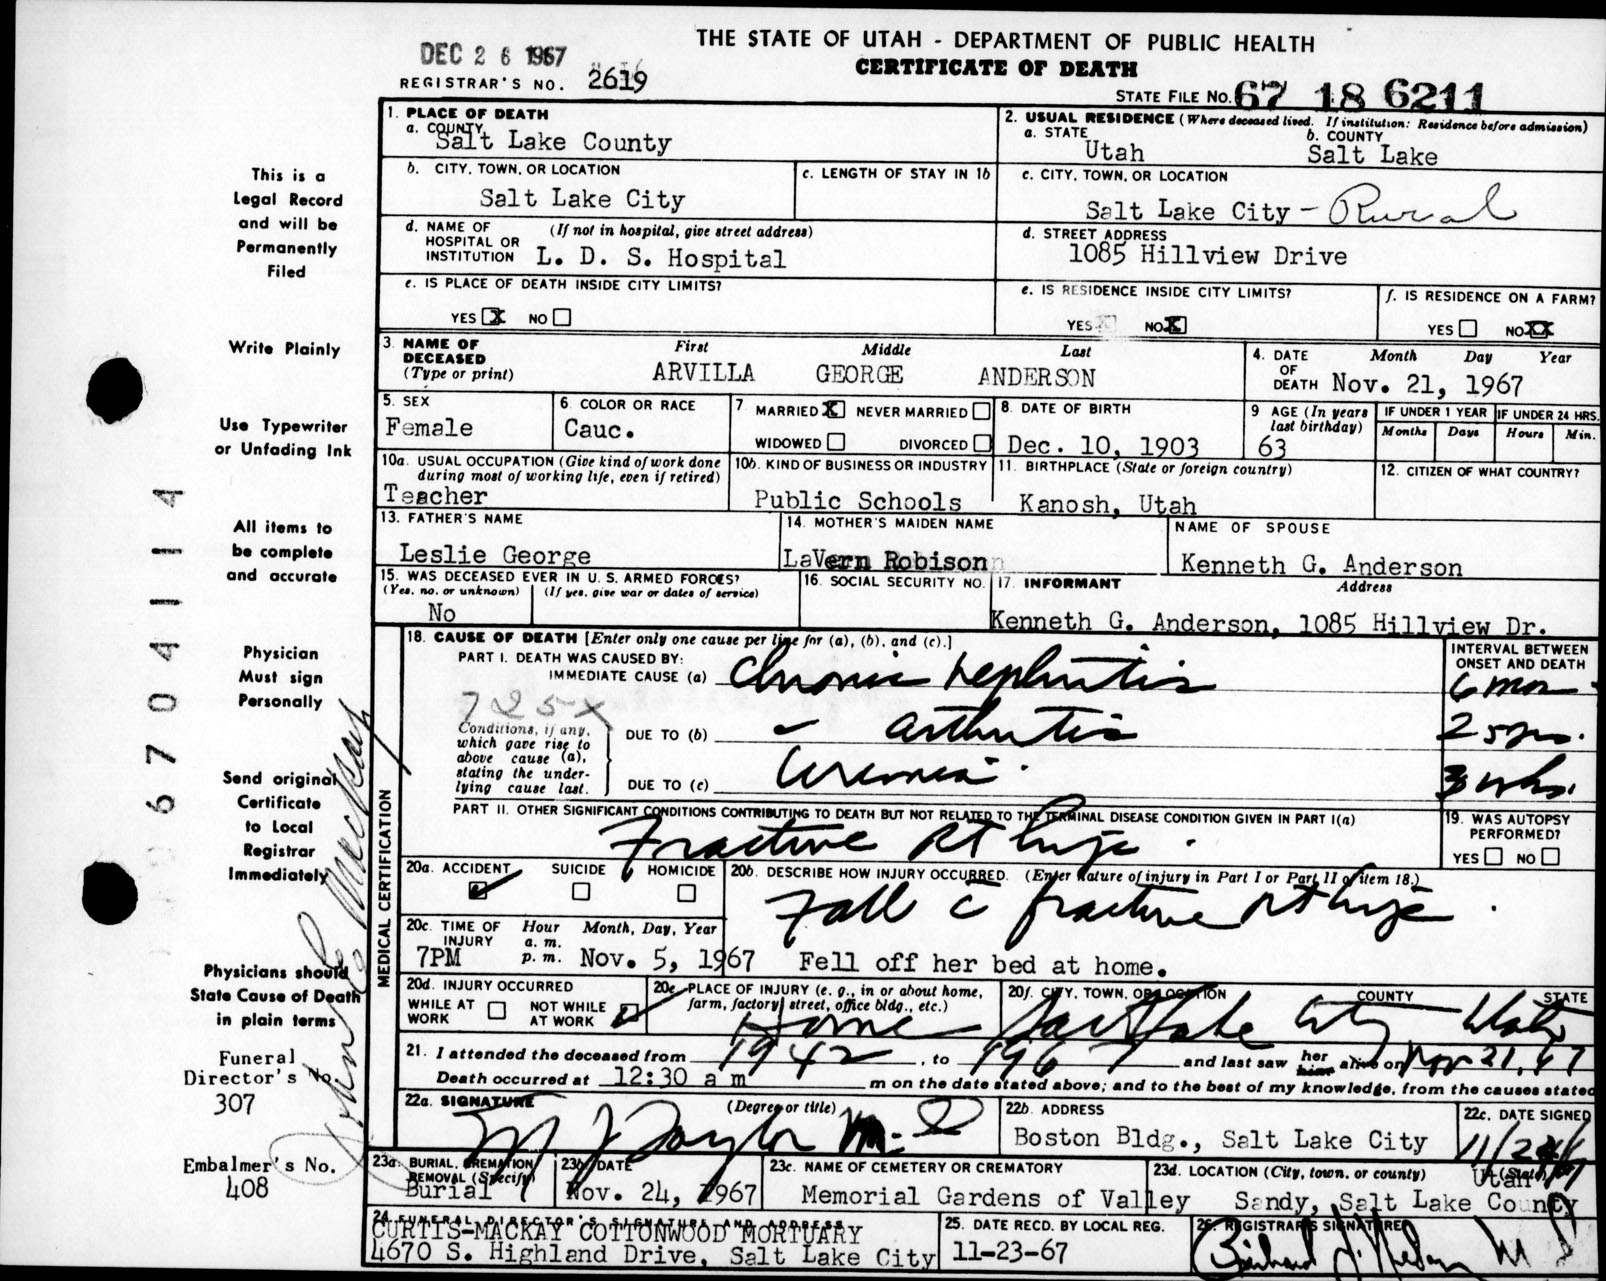 THE STATE OF UTAH - DEPARTMENT OF PUBLIC HEALTH
CERTIFICATE OF DEATH
DEC 26 1967
REGISTRAR'S NO. 2619
STATE FILE NO. 67 18 6211
This is a
Legal Record
and will be
Permanently
Filed
Write Plainly
Use Typewriter
or Unfading Ink
All items to
be complete
and accurate
Physician
Must sign
Personally
Send original
Certificate
to Local
Registrar
Immediately
Physicians should
State Cause of Death
in plain terms
Funeral
Director's No.
307
Embalmer's No.
408
67041114
1. PLACE OF DEATH
a. COUNTY
Salt Lake County
2. USUAL RESIDENCE (Where deceased lived. If institution: Residence before admission)
a. STATE b. COUNTY
Utah Salt Lake
b. CITY, TOWN, OR LOCATION
Salt Lake City
c. LENGTH OF STAY IN 1b
c. CITY, TOWN, OR LOCATION
Salt Lake City - Rural
d. NAME OF HOSPITAL OR INSTITUTION (If not in hospital, give street address)
L. D. S. Hospital
d. STREET ADDRESS
1085 Hillview Drive
e. IS PLACE OF DEATH INSIDE CITY LIMITS?
YES X NO
e. IS RESIDENCE INSIDE CITY LIMITS?
YES NO X
f. IS RESIDENCE ON A FARM?
YES NO XX
3. NAME OF DECEASED (Type or print)
First Middle Last
ARVILLA GEORGE ANDERSON
4. DATE OF DEATH Month Day Year
Nov. 21, 1967
5. SEX
Female
6. COLOR OR RACE
Cauc.
7. MARRIED X NEVER MARRIED
WIDOWED DIVORCED
8. DATE OF BIRTH
Dec. 10, 1903
9. AGE (In years last birthday)
63
IF UNDER 1 YEAR IF UNDER 24 HRS.
Months Days Hours Min.
10a. USUAL OCCUPATION (Give kind of work done during most of working life, even if retired)
Teacher
10b. KIND OF BUSINESS OR INDUSTRY
Public Schools
11. BIRTHPLACE (State or foreign country)
Kanosh, Utah
12. CITIZEN OF WHAT COUNTRY?
13. FATHER'S NAME
Leslie George
14. MOTHER'S MAIDEN NAME
LaVern Robison
NAME OF SPOUSE
Kenneth G. Anderson
15. WAS DECEASED EVER IN U. S. ARMED FORCES?
(Yes, no, or unknown) (If yes, give war or dates of service)
No
16. SOCIAL SECURITY NO.
17. INFORMANT Address
Kenneth G. Anderson, 1085 Hillview Dr.
MEDICAL CERTIFICATION
18. CAUSE OF DEATH [Enter only one cause per line for (a), (b), and (c).]
PART I. DEATH WAS CAUSED BY:
IMMEDIATE CAUSE (a) Chronic nephritis
INTERVAL BETWEEN ONSET AND DEATH
6 mon
725X
Conditions, if any, which gave rise to above cause (a), stating the underlying cause last.
DUE TO (b) - arthritis
25 yrs.
DUE TO (c) Uremia
3 wks.
PART II. OTHER SIGNIFICANT CONDITIONS CONTRIBUTING TO DEATH BUT NOT RELATED TO THE TERMINAL DISEASE CONDITION GIVEN IN PART I(a)
Fracture Rt hip.
19. WAS AUTOPSY PERFORMED?
YES NO
20a. ACCIDENT SUICIDE HOMICIDE
20b. DESCRIBE HOW INJURY OCCURRED. (Enter nature of injury in Part I or Part II of item 18.)
Fall c fracture Rt hip.
Fell off her bed at home.
20c. TIME OF INJURY Hour a. m. p. m. Month, Day, Year
7PM Nov. 5, 1967
20d. INJURY OCCURRED
WHILE AT WORK NOT WHILE AT WORK
20e. PLACE OF INJURY (e. g., in or about home, farm, factory, street, office bldg., etc.)
Home
20f. CITY, TOWN, OR LOCATION COUNTY STATE
Salt Lake City Utah
21. I attended the deceased from 1942, to 1967 and last saw her him alive on Nov 21, 67
Death occurred at 12:30 a m m on the date stated above; and to the best of my knowledge, from the causes stated
22a. SIGNATURE (Degree or title)
Taylor M.D
22b. ADDRESS
Boston Bldg., Salt Lake City
22c. DATE SIGNED
23a. BURIAL, CREMATION REMOVAL (Specify)
Burial
23b. DATE
Nov. 24, 1967
23c. NAME OF CEMETERY OR CREMATORY
Memorial Gardens of Valley
23d. LOCATION (City, town, or county) (State)
Sandy, Salt Lake County Utah
24. FUNERAL DIRECTOR'S SIGNATURE AND ADDRESS
CURTIS-MACKAY COTTONWOOD MORTUARY
4670 S. Highland Drive, Salt Lake City
25. DATE RECD. BY LOCAL REG.
11-23-67
26. REGISTRAR'S SIGNATURE